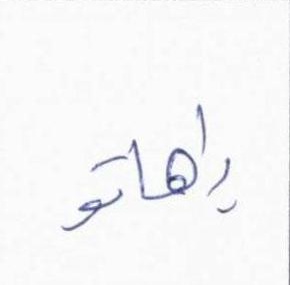 ڕاهاتو